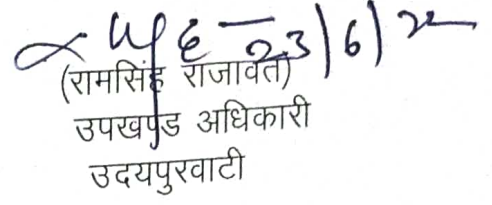 23/6/22
(रामसिंह राजावत)
उपखण्ड अधिकारी
उदयपुरवाटी